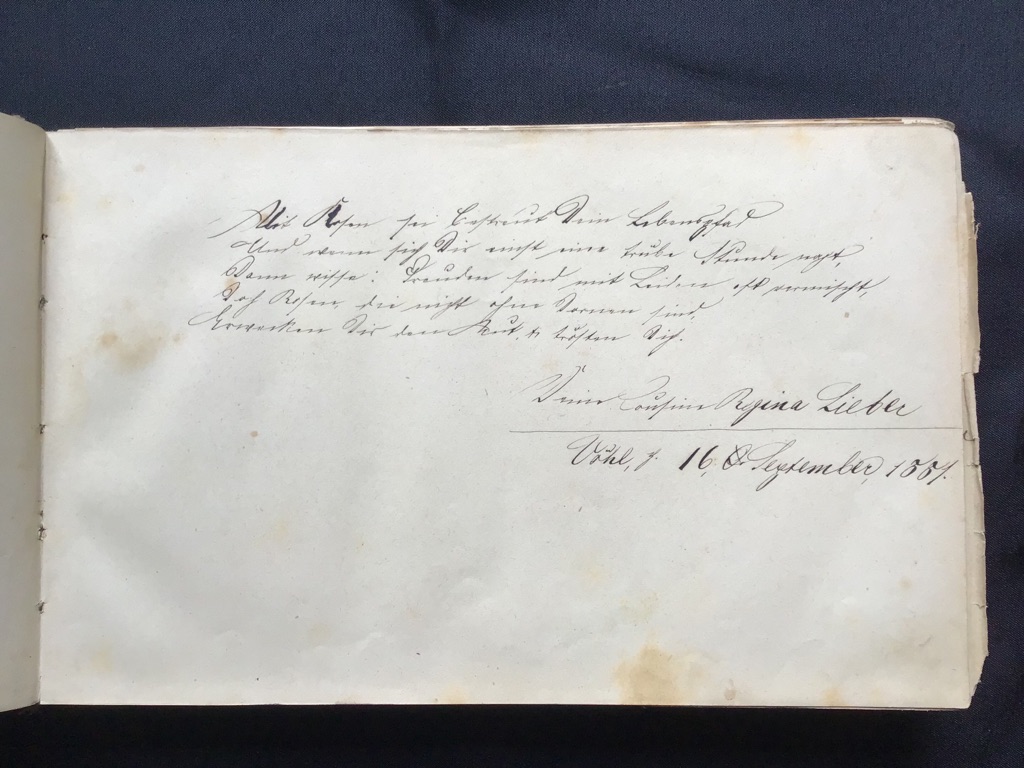 Mit Rosen sei bestreut Dein Lebenspfad
Und wenn sich Dir einst eine trübe Stunde naht,
Dann wisse: Freuden sind mit Leiden oft vermischt,
Doch Rosen, die nicht ohne Dornen sind,
Erwecken Dir den Mut, u. trösten Dich.
Deine Cousine Regina Lieber
Vöhl, d. 16. September,